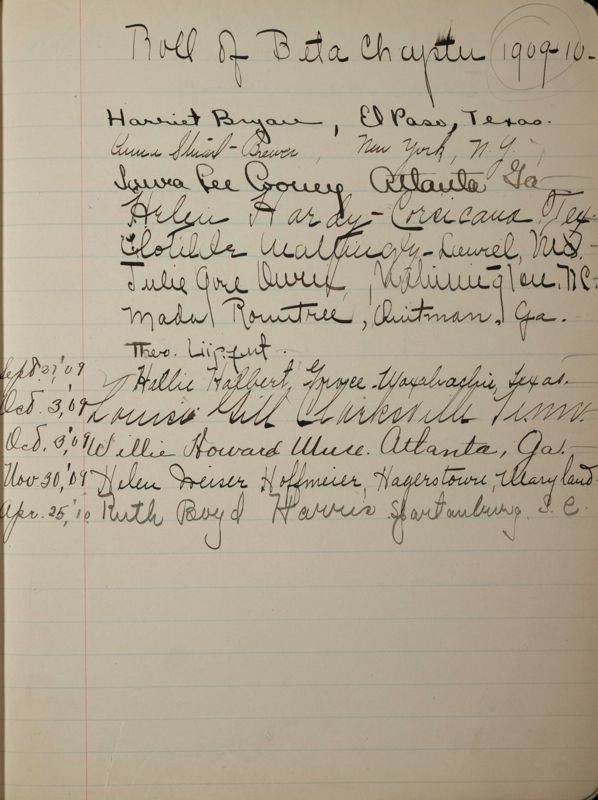 Roll of Beta Chapter 1909-10-
Harriet Bryan, El Paso, Texas.
Stuart-Brewer, New York, N.Y.,
Laura Lee Cooney Atlanta Ga-
Helen Hardy-Corsicana, Tex-
Clotilde Mattingly-Laurel, Md.-
Julie Gore Owen, Wilmington, N.C.
Mada Rountree, Quitman, Ga.
Theo. Lippert.
Sept 27,'09 Hallie Halbert, Waxahachie, Texas.
Oct. 3,'09 Louise Gill Clarksville Tenn.
Oct. 3,'09 Willie Howard Muse. Atlanta, Ga.-
Nov 30,'09 Helen Meiser Hoffmeier, Hagerstown, Maryland-
Apr. 25,'10 Ruth Boyd Harris Spartanburg. S.C.